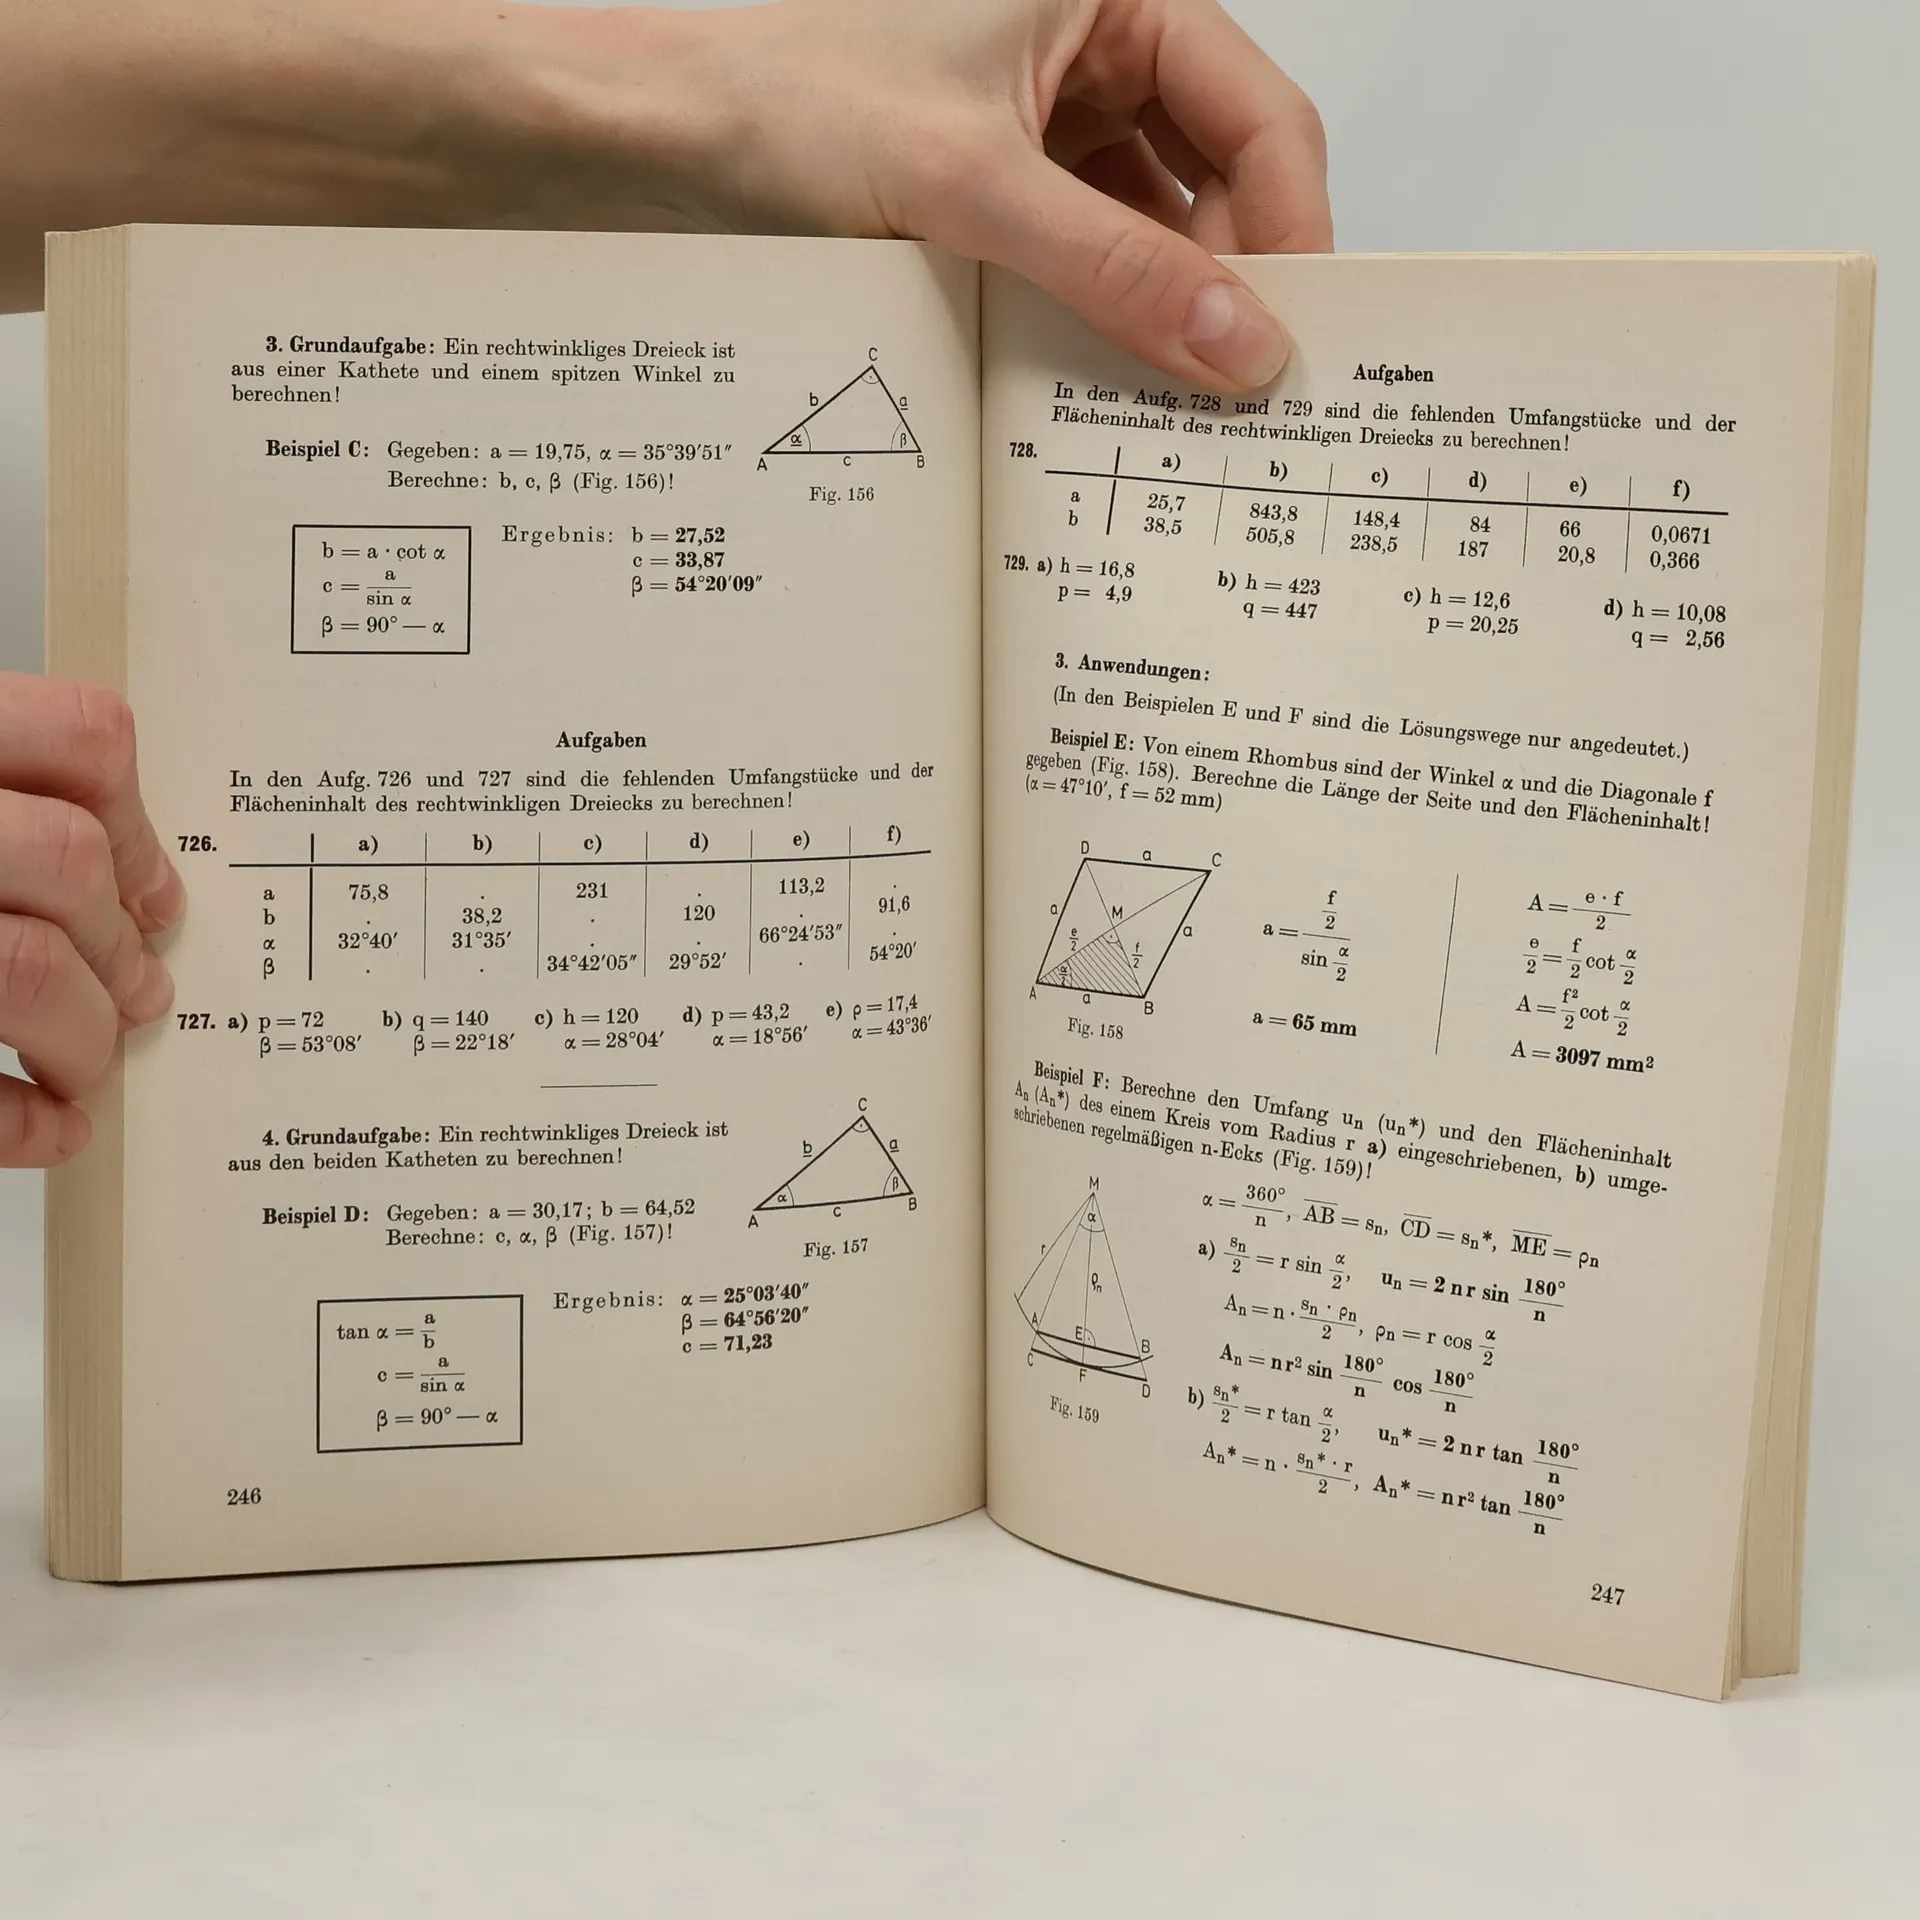 3. Grundaufgabe: Ein rechtwinkliges Dreieck ist
aus einer Kathete und einem spitzen Winkel zu
berechnen!
C
b
a
α
β
A
c
B
Fig. 156
Beispiel C: Gegeben: a = 19,75, α = 35°39′51″
Berechne: b, c, β (Fig. 156)!
b = a · cot α
c = a / sin α
β = 90° — α
Ergebnis: b = 27,52
c = 33,87
β = 54°20′09″
Aufgaben
In den Aufg. 726 und 727 sind die fehlenden Umfangstücke und der
Flächeninhalt des rechtwinkligen Dreiecks zu berechnen!
726. a) b) c) d) e) f)
a 75,8 . 231 . 113,2 .
b . 38,2 . 120 . 91,6
α 32°40′ 31°35′ . . 66°24′53″ .
β . . 34°42′05″ 29°52′ . 54°20′
727. a) p = 72 b) q = 140 c) h = 120 d) p = 43,2 e) ρ = 17,4
β = 53°08′ β = 22°18′ α = 28°04′ α = 18°56′ α = 43°36′
4. Grundaufgabe: Ein rechtwinkliges Dreieck ist
aus den beiden Katheten zu berechnen!
C
b
a
α
β
A
c
B
Fig. 157
Beispiel D: Gegeben: a = 30,17; b = 64,52
Berechne: c, α, β (Fig. 157)!
tan α = a / b
c = a / sin α
β = 90° — α
Ergebnis: α = 25°03′40″
β = 64°56′20″
c = 71,23
246
Aufgaben
In den Aufg. 728 und 729 sind die fehlenden Umfangstücke und der
Flächeninhalt des rechtwinkligen Dreiecks zu berechnen!
728. a) b) c) d) e) f)
a 25,7 843,8 148,4 84 66 0,0671
b 38,5 505,8 238,5 187 20,8 0,366
729. a) h = 16,8 b) h = 423 c) h = 12,6 d) h = 10,08
p = 4,9 q = 447 p = 20,25 q = 2,56
3. Anwendungen:
(In den Beispielen E und F sind die Lösungswege nur angedeutet.)
Beispiel E: Von einem Rhombus sind der Winkel α und die Diagonale f
gegeben (Fig. 158). Berechne die Länge der Seite und den Flächeninhalt!
(α = 47°10′, f = 52 mm)
D
a
C
a
M
a
e/2
f/2
α/2
A
a
B
Fig. 158
a = (f/2) / (sin α/2)
a = 65 mm
A = e · f / 2
e/2 = f/2 cot α/2
A = f²/2 cot α/2
A = 3097 mm²
Beispiel F: Berechne den Umfang uₙ (uₙ*) und den Flächeninhalt
Aₙ (Aₙ*) des einem Kreis vom Radius r a) eingeschriebenen, b) umge-
schriebenen regelmäßigen n-Ecks (Fig. 159)!
M
α
r
ρₙ
A
E
B
C
F
D
Fig. 159
α = 360°/n, AB = sₙ, CD = sₙ*, ME = ρₙ
a) sₙ/2 = r sin α/2, uₙ = 2 n r sin 180°/n
Aₙ = n · sₙ · ρₙ / 2, ρₙ = r cos α/2
Aₙ = n r² sin 180°/n cos 180°/n
b) sₙ*/2 = r tan α/2, uₙ* = 2 n r tan 180°/n
Aₙ* = n · sₙ* · r / 2, Aₙ* = n r² tan 180°/n
247